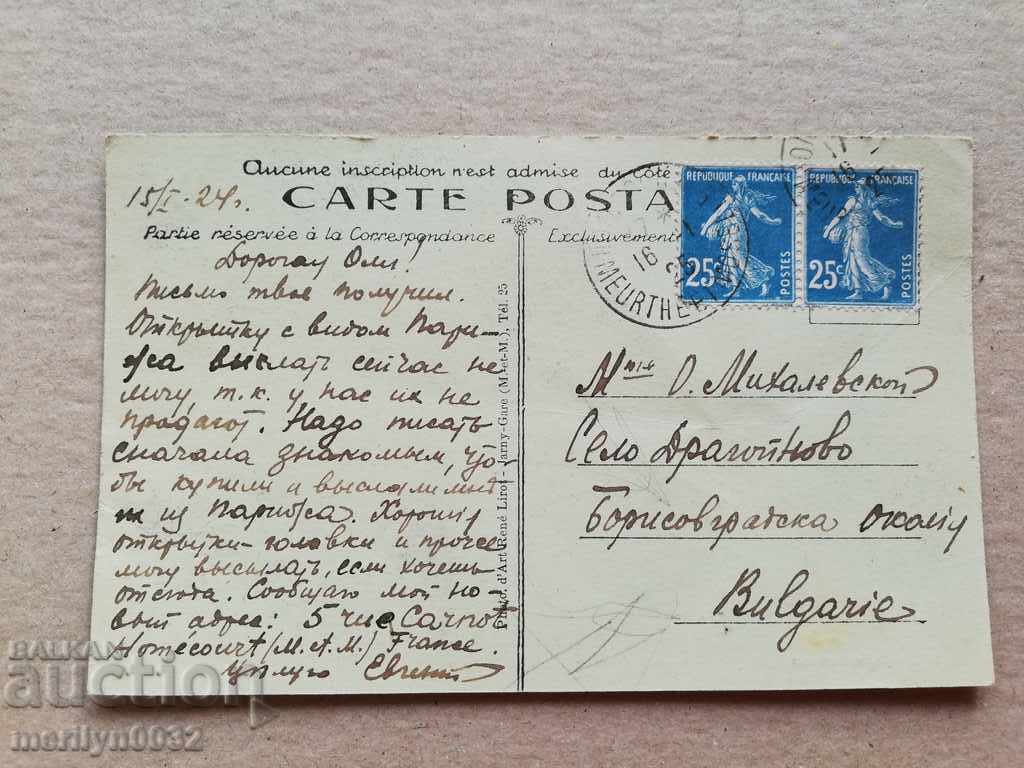 Aucune inscription n'est admise du Côté
15/I-24г.
CARTE POSTA
Partie réservée à la Correspondance
Exclusivement
Дорогая Оля.
Письмо твое получил.
Открытку с видом Пари-
жа выслать сейчас не
могу, т.к. у нас их не
продают. Надо писать
сначала знакомым, что
бы купили и выслали мне
из Парижа. Хорошия
открытки-головки и прочее
могу высылать, если хочешь
отсюда. Сообщаю мой но-
вый адрес: 5 rue Carnot
Homécourt (M. et M.) France.
Евгений
Photo. d'Art René Lirot - Jarny-Gare (M.-et-M.), Tél. 25
RÉPUBLIQUE FRANÇAISE
25c
POSTES
RÉPUBLIQUE FRANÇAISE
25c
POSTES
16
MEURTHE-ET-M
Mme О. Михалевской
Село Драгойново
Борисовградска околия
Bulgarie
BALKAN
auction
merilyn0032